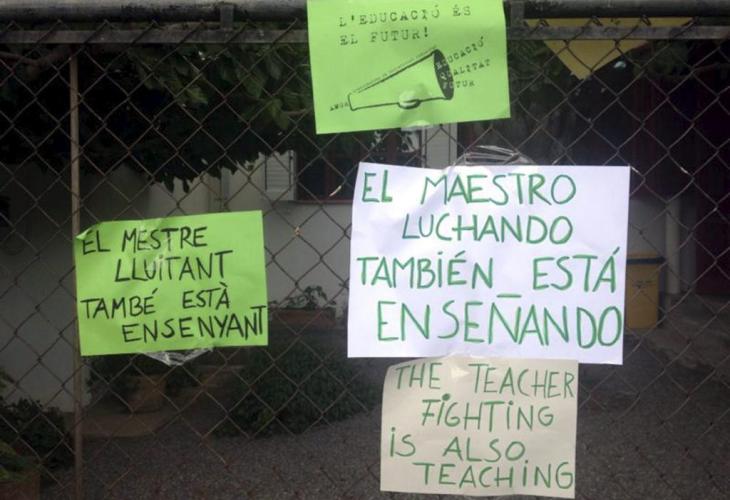 L'EDUCACIÓ ÉS
EL FUTUR!
EDUCACIÓ
QUALITAT
FUTUR
EL MESTRE
LLUITANT
TAMBÉ ESTÀ
ENSENYANT
EL MAESTRO
LUCHANDO
TAMBIÉN ESTÁ
ENSEÑANDO
THE TEACHER
FIGHTING
IS ALSO
TEACHING